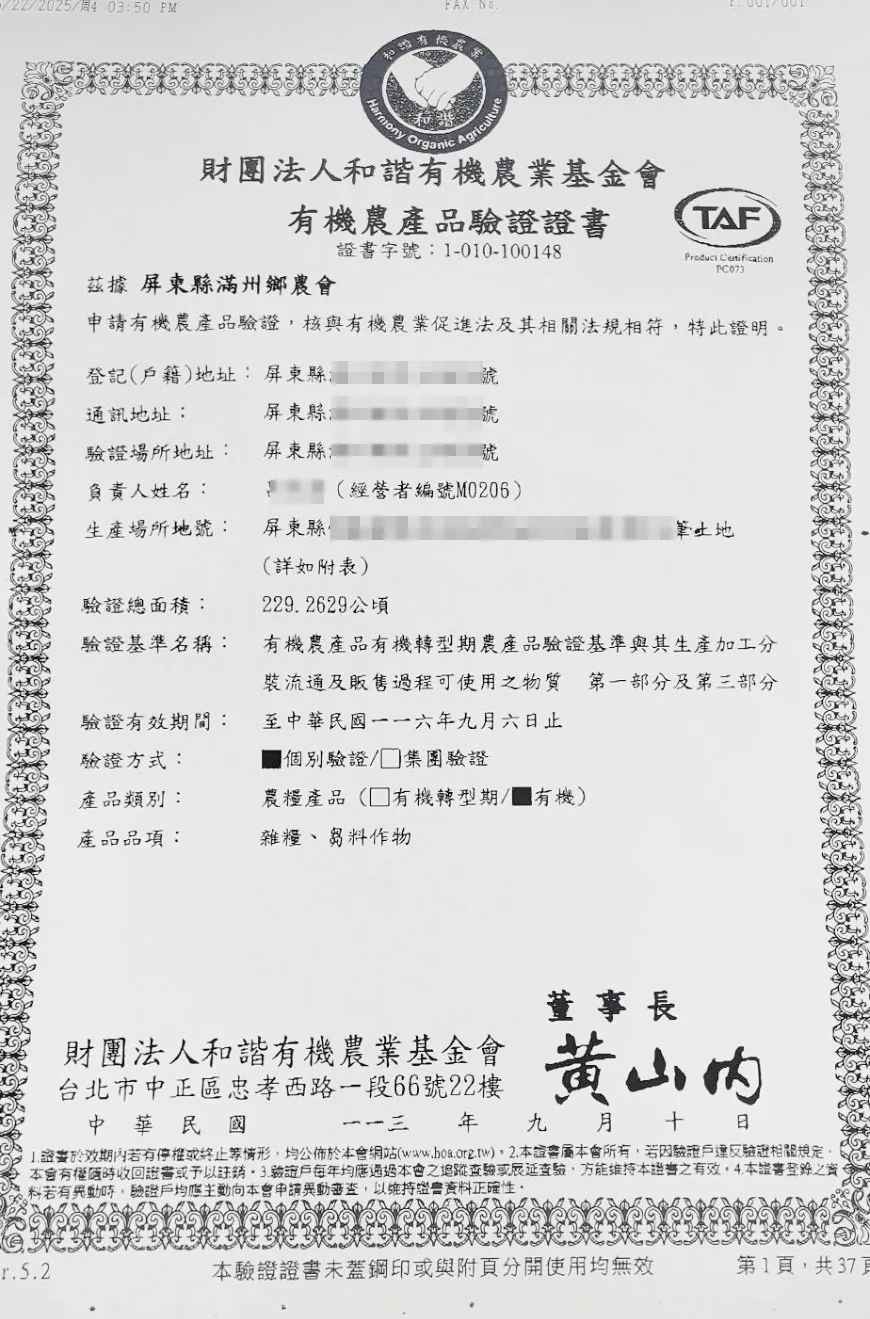 /22/2025/周4 03:50 PM FAX No. P.001/001
和諧有機農業
和諧
Harmony Organic Agriculture
財團法人和諧有機農業基金會
有機農產品驗證證書
TAF
證書字號：1-010-100148
Product Certification
PC073
茲據 屏東縣滿州鄉農會
申請有機農產品驗證，核與有機農業促進法及其相關法規相符，特此證明。
登記(戶籍)地址：屏東縣 號
通訊地址： 屏東縣 號
驗證場所地址： 屏東縣 號
負責人姓名： （經營者編號M0206）
生產場所地號： 屏東縣 筆土地
(詳如附表)
驗證總面積： 229.2629公頃
驗證基準名稱： 有機農產品有機轉型期農產品驗證基準與其生產加工分
裝流通及販售過程可使用之物質 第一部分及第三部分
驗證有效期間： 至中華民國一一六年九月六日止
驗證方式： ■個別驗證/□集團驗證
產品類別： 農糧產品（□有機轉型期/■有機）
產品品項： 雜糧、芻料作物
董事長
財團法人和諧有機農業基金會
黃山內
台北市中正區忠孝西路一段66號22樓
中華民國 一一三 年 九 月 十 日
1.證書於效期內若有停權或終止等情形，均公佈於本會網站(www.hoa.org.tw)。2.本證書屬本會所有，若因驗證戶違反驗證相關規定，
本會有權隨時收回證書或予以註銷。3.驗證戶每年均應通過本會之追蹤查驗或展延查驗，方能維持本證書之有效。4.本證書登錄之資
料若有異動時，驗證戶均應主動向本會申請異動審查，以維持證書資料正確性。
r.5.2 本驗證證書未蓋鋼印或與附頁分開使用均無效 第1頁，共37頁